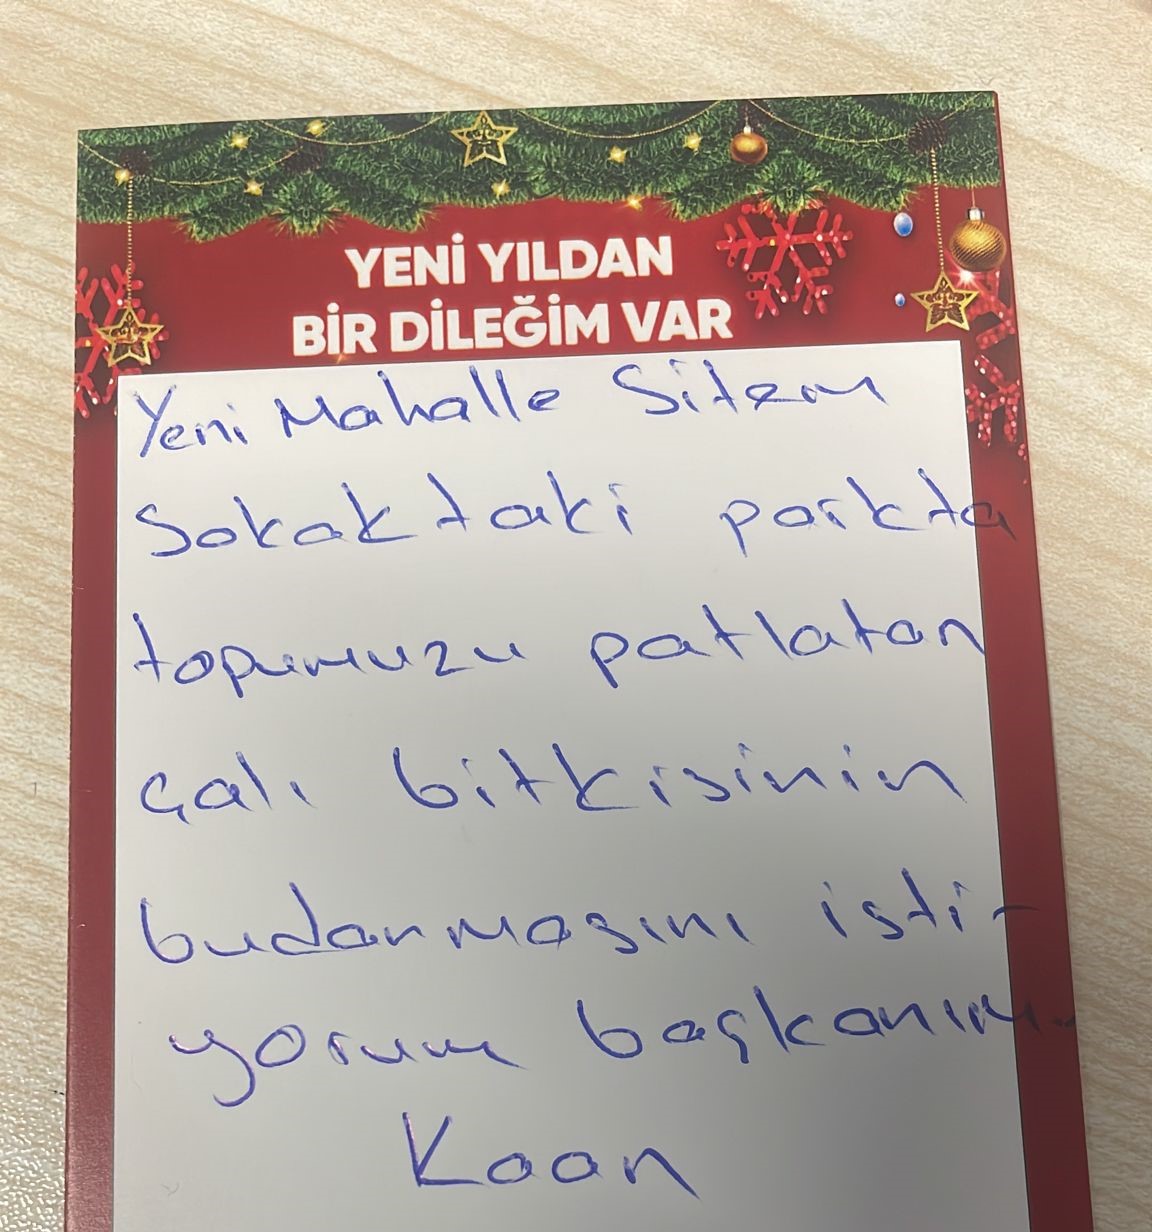 YENİ YILDAN
BİR DİLEĞİM VAR
Yeni Mahalle Sitem
Sokaktaki parkta
topumuzu patlatan
çalı bitkisinin
budanmasını isti-
yorum başkanım.
Kaan